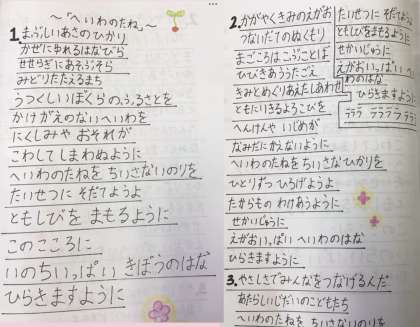 ～「へいわのたね」～
1.まぶしいあさのひかり
かぜにゆれるはなびら
せせらぎにあそぶそら
みどりたたえるまち
うつくしいぼくらの、ふるさとを
かけがえのないへいわを
にくしみや おそれが
こわしてしまわぬように
へいわのたねを ちいさないのりを
たいせつに そだてようよ
ともしびを まもるように
このこころに
いのちいっぱい きぼうのはな
ひらきますように
2.かがやくきみのえがお
つないだてのぬくもり
まごころはこぶことば
ひびきあううたごえ
きみとめぐりあえたしあわせ
ともにいきるよろこびを
へんけんや いじめが
なみだにかえないように
へいわのたねを ちいさなひかりを
ひとりずつ ひろげようよ
たからもの わけあうように
せかいじゅうに
えがおいっぱい へいわのはな
ひらきますように
3.やさしさでみんなをつなげるんだ
あたらしいじだいのこどもたち
へいわのたねを ちいさないのりを
たいせつに そだてよう
ともしびをまもるように
せかいじゅうに
えがおいっぱい へい
わのはな
ひらきますように
ラララ ラララララララ